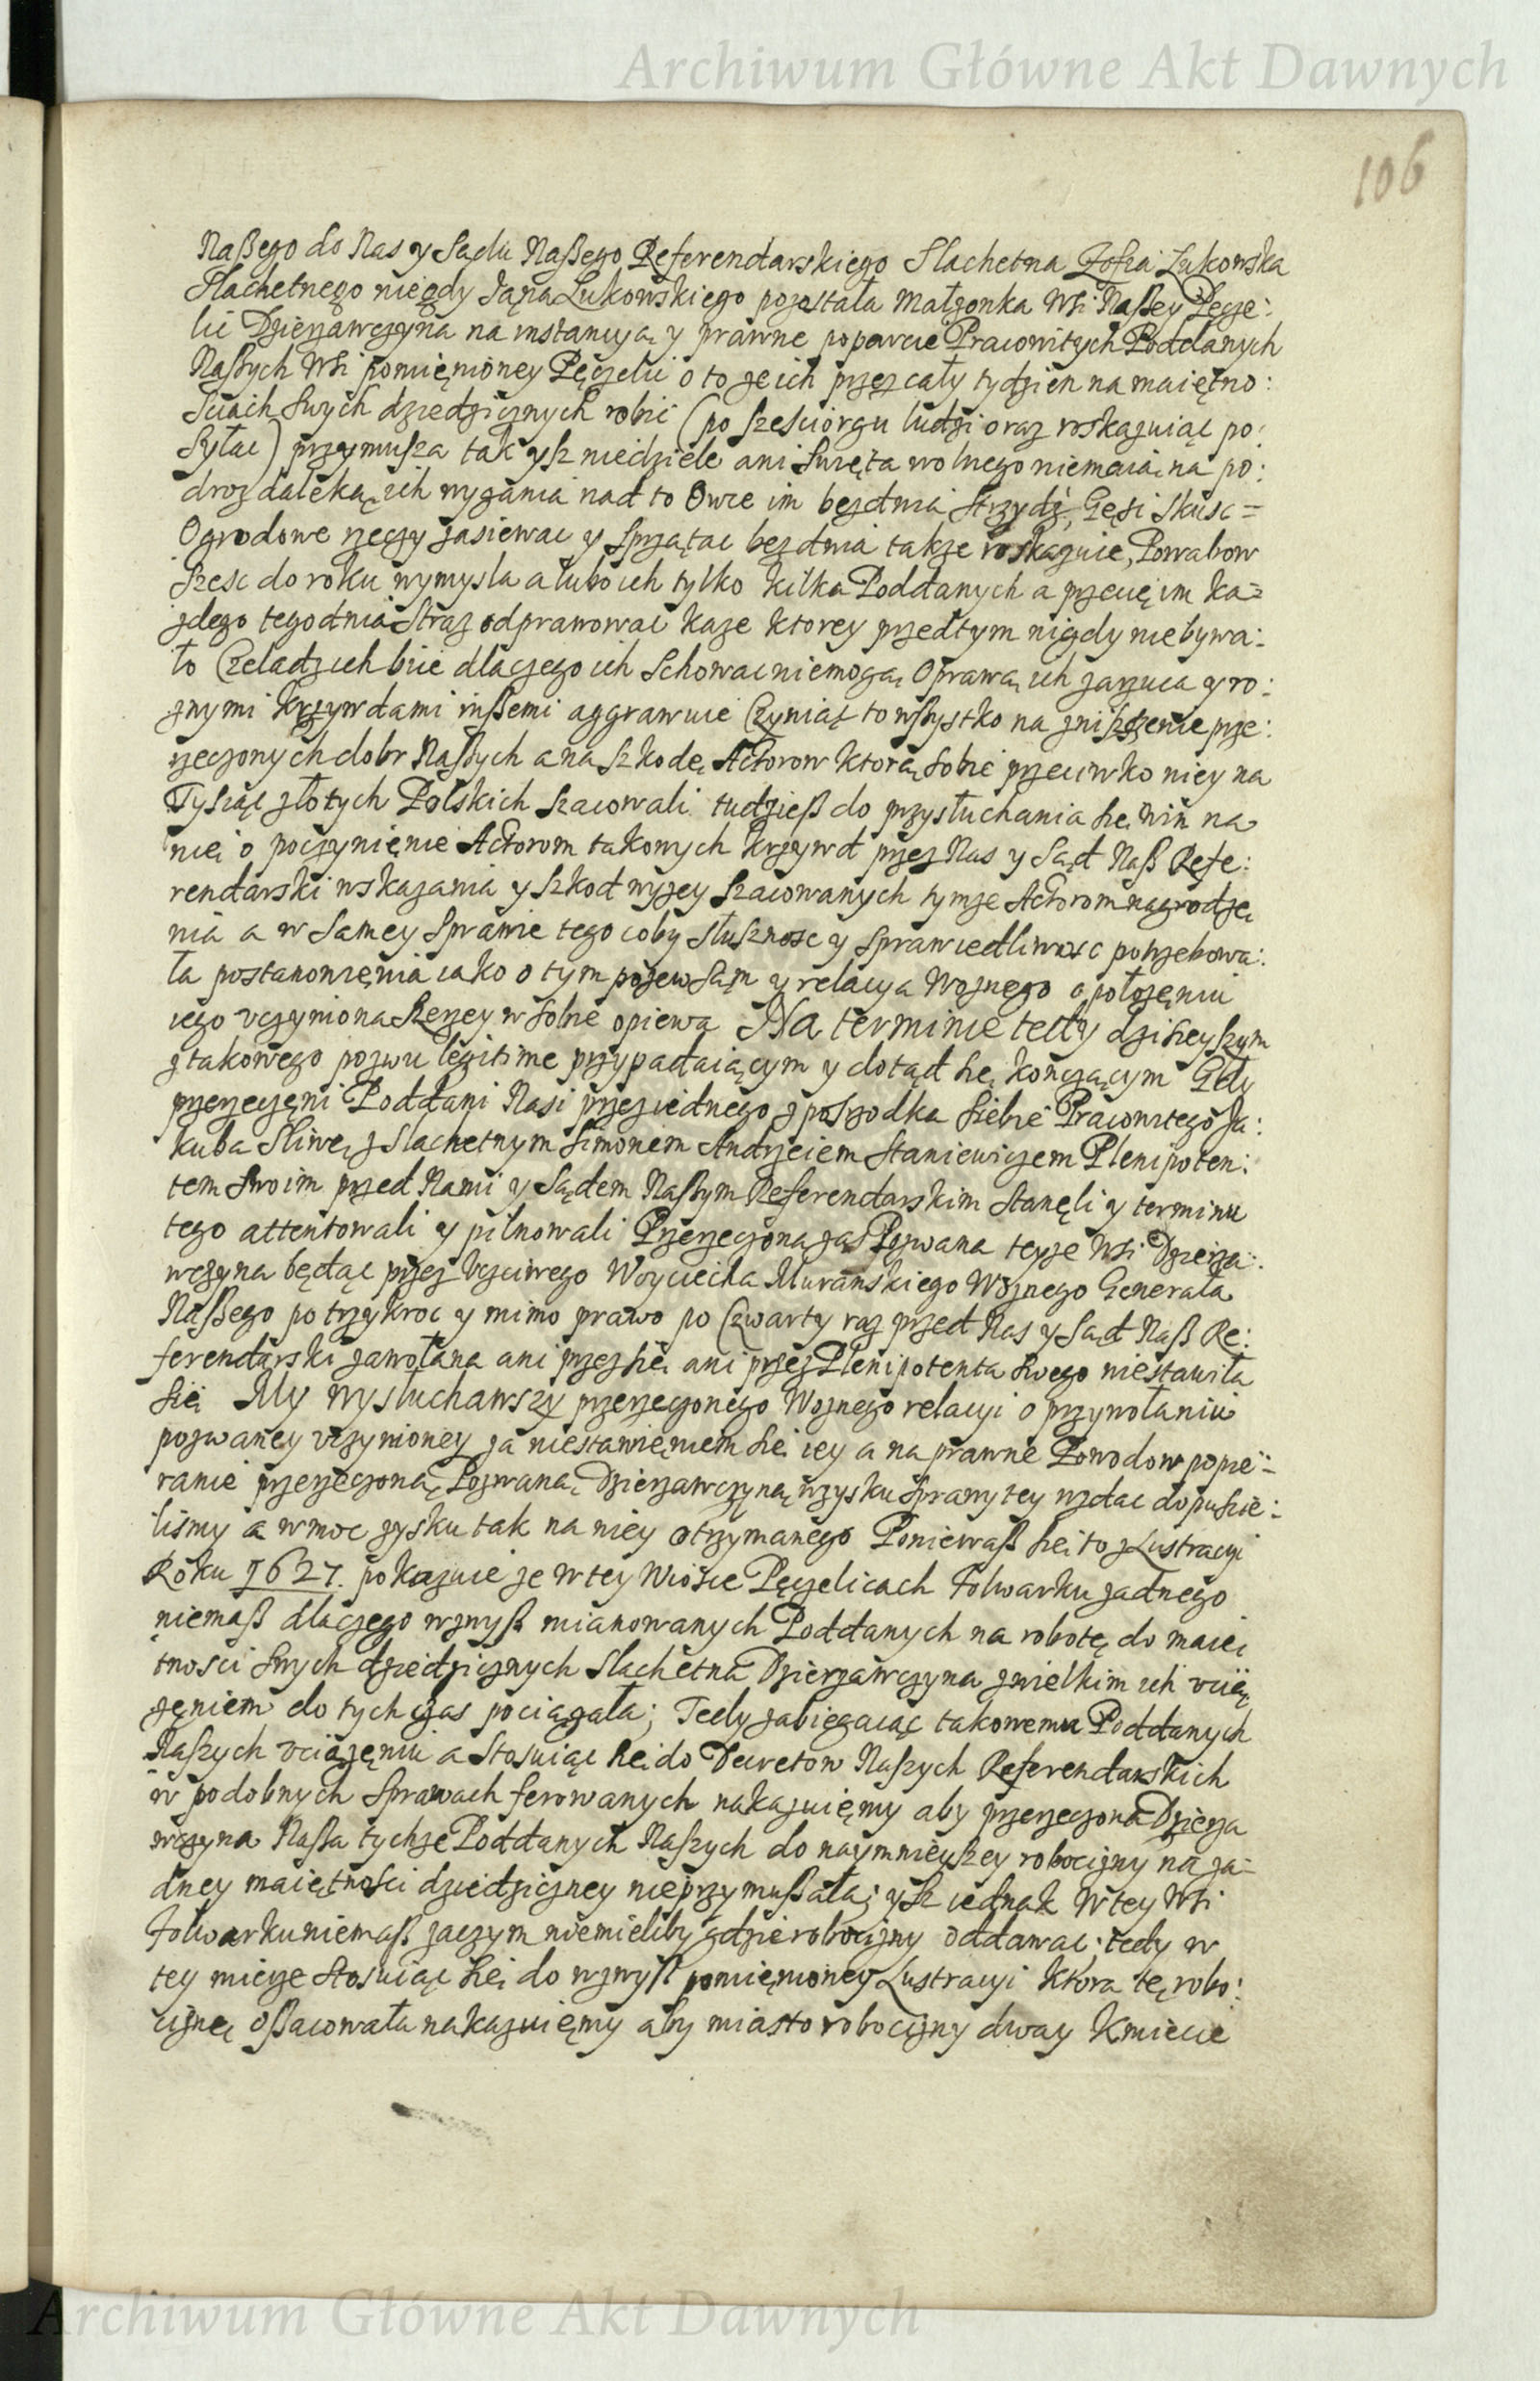 Archiwum Główne Akt Dawnych
106
Naßego do Nas y Sądu Naßego Referendarskiego Slachetna Zofia Łukowska
Slachetnego niegdy Jana Łukowskiego pozostała Małzonka Wsi Naßey Pęcze:
lic Dzierzawczyna na instancyą y prawne poparcie Pracowitych Poddanych
Naßych Wsi pomięnioney Pęczelic o to ze ich przez cały tydzien na maiętno:
sciach swych dziedzicznych robic (po szesciorgu ludzi oraz roskazuiąc po:
syłac) przymusza tak ysz niedziele ani swięta wolnego niemaią na po:
droz daleką ich wygania nad to Owce im bezdnia strzydz, Gęsi skusc =
Ogrodowe rzeczy zasiewac y sprzątac bezdnia takze roskazuie, Powabow
szesc do roku wymysla a lubo ich tylko kilka Poddanych a przecię im ka=
zdego tegodnia Straz odprawowac kaze ktorey przedtym nigdy nie bywa:
ło Czeladz ich biie dlaczego ich schowac niemogą Oprawą ich zarzuca y ro:
znymi krzywdami inßemi aggrawuie Czyniąc to wßystko na zniszczenie prze:
rzeczonych dobr Naßych a na szkodę Actorow ktorą sobie przeciwko niey na
Tysiąc złotych Polskich szacowali tudzieß do przysłuchania się win na
nię o poczynięnie Actorom takowych krzywd przez Nas y Sąd Naß Refe:
rendarski wskazania y szkod wyzey szacowanych tymze Actorom nagrodzę
nia a w samey sprawie tego coby słusznosc y sprawiedliwosc potrzebowa:
ła postanowięnia iako o tym pozew sąm y relacya Woznego o połozęniu
iego vczyniona szerzey w sobie opiewa Na terminie tedy dzisieyszym
z takowego pozwu legitime przypadaiącym y dotąd się kończącym Gdy
przerzeczęni Poddani Nasi przez iednego z posrzodka siebie Pracowitego Ja:
kuba Sliwę z Slachetnym Simonem Andrzeiem Staniewiczem Plenipoten:
tem swoim przed Nami y Sądem Naßym Referendarskim stanęli y terminu
tego attentowali y pilnowali Przerzeczona zas Pozwana teyze Wsi Dzierza:
wczyna będąc przez Vczciwego Woyciecha Muranskiego Woznego Generała
Naßego po trzykroc y mimo prawo po Czwarty raz przed Nas y Sąd Naß Re:
ferendarski zawołana ani przez się ani przez Plenipotenta swego niestawiła
się My wysłuchawszy przerzeczonego Woznego relacyi o przywołaniu
pozwaney vczynioney za niestawięniem się iey a na prawne Powodow popie=
ranie przerzeczoną Pozwaną Dzierzawczyną wzysku sprawy tey wzdac dopuscie:
lismy a w moc zysku tak na niey otrzymanego Poniewaß się to z Lustracyi
Roku 1627. pokazuie ze w tey Wiosce Pęczelicach Folwarku zadnego
niemaß dlaczego wzwyß mianowanych Poddanych na robotę do maię
tnosci swych dziedzicznych Slachetna Dzierzawczyna z wielkim ich vcią
zęniem do tych czas pociągała; Tedy zabiegaiąc takowemu Poddanych
Naszych vciązęniu a stosuiąc się do Decretow Naszych Referendarskich
w podobnych sprawach ferowanych nakazuięmy aby przerzeczona Dzierza
wczyna Naßa tychze Poddanych Naszych do naymnieyszey robocizny na za=
dney maiętnosci dziedziczney nieprzymußała; ysz iednak w tey Wsi
Folwarku niemaß zaczym niemieliby gdzie robocizny oddawac; tedy w
tey mierze stosuiąc się do wzwyß pomięnioney Lustracyi ktora tę robo:
ciznę oßacowała nakazuięmy aby miasto robocizny dway Kmiecie
Archiwum Główne Akt Dawnych